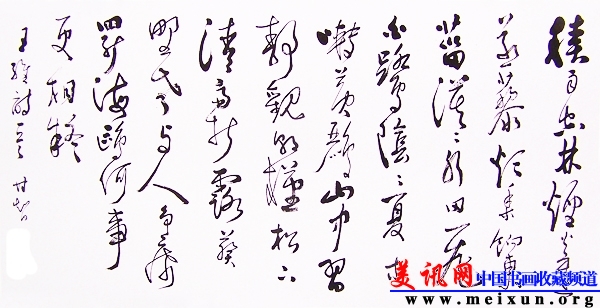 積雨空林煙火遲
蒸藜炊黍餉東
菑漠〻水田飛
白鷺陰〻夏木
囀黃鸝山中習
靜觀朝槿松下
清齋折露葵
野老與人爭席
罷海鷗何事
更相疑
王維詩
美讯网 中国书画收藏频道
www.meixun.org